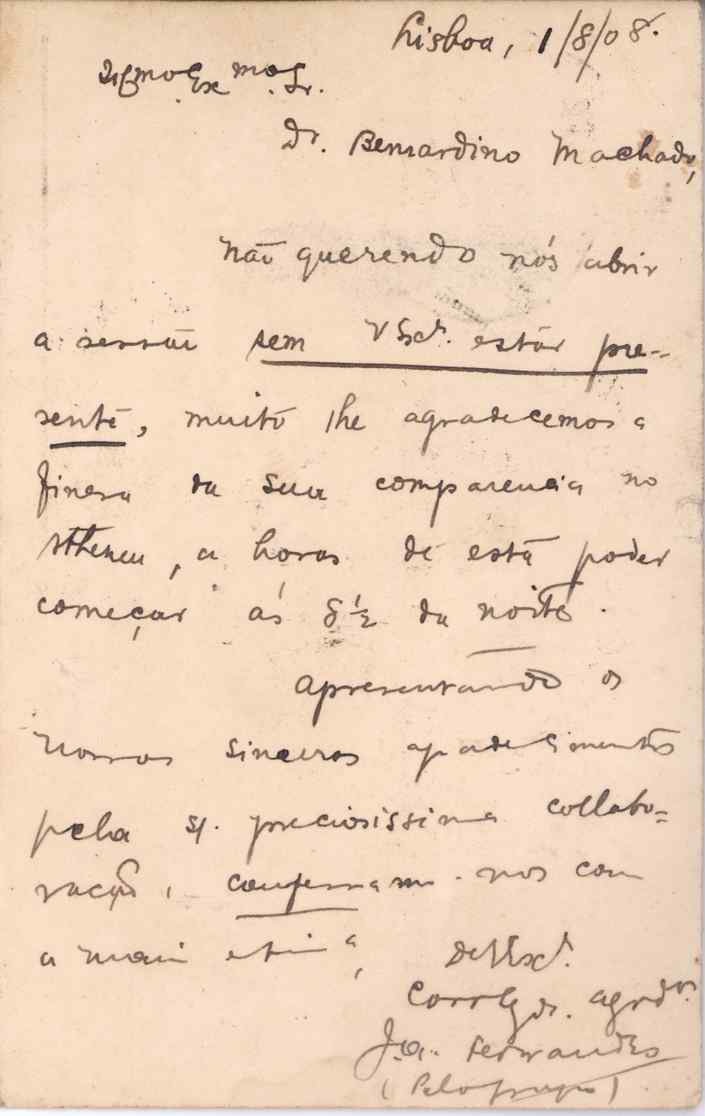 Lisboa, 1/8/08.
Exmo. Sr.
Dr. Bernardino Machado,
Não querendo nós abrir
a sessão sem V Exa. estar pre-
sente, muito lhe agradecemos a
fineza da sua comparencia no
Atheneu, a horas de esta poder
começar ás 8 1/2 da noite.
Apresentando os
nossos sinceros agradecimentos
pela s/. preciosissima collabo-
ração, confessamo-nos com
a maior estima,
De V. Exa.
agrdos.
Fernandes
(Pelo Grupo)